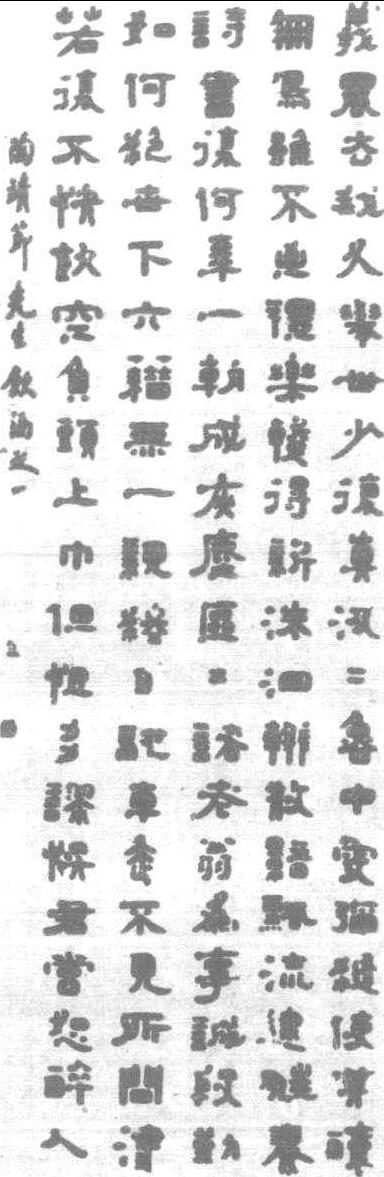 羲農去我久舉世少復真汲〻魯中叟彌縫使其淳
鳳鳥雖不至禮樂暫得新洙泗輟微響漂流逮狂秦
詩書復何辠一朝成灰塵區〻諸老翁為事誠殷勤
如何絕世下六籍無一親終日馳車走不見所問津
若復不快飲空負頭上巾但恨多謬誤君當恕醉人
陶靖節先生飲酒之一